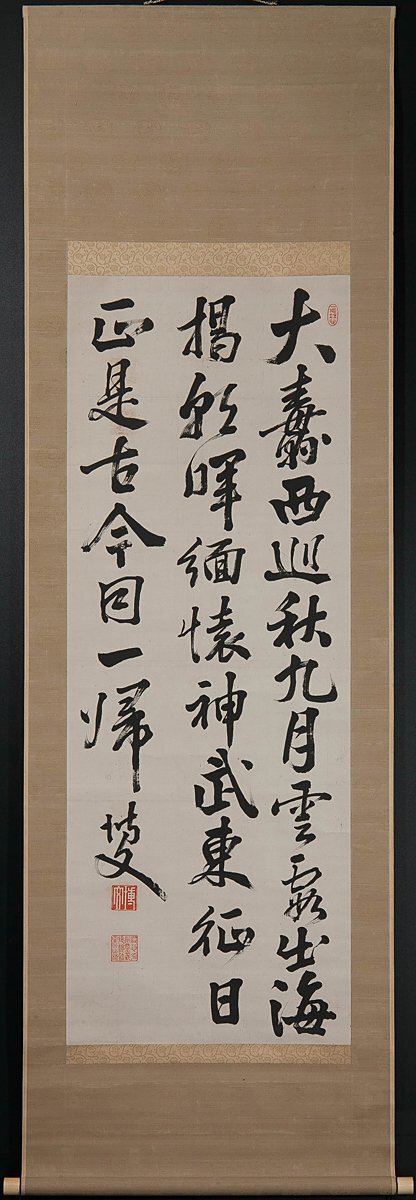 大纛西巡秋九月雲霞出海
掲朝暉緬懐神武東征日
正是古今同一帰 博文